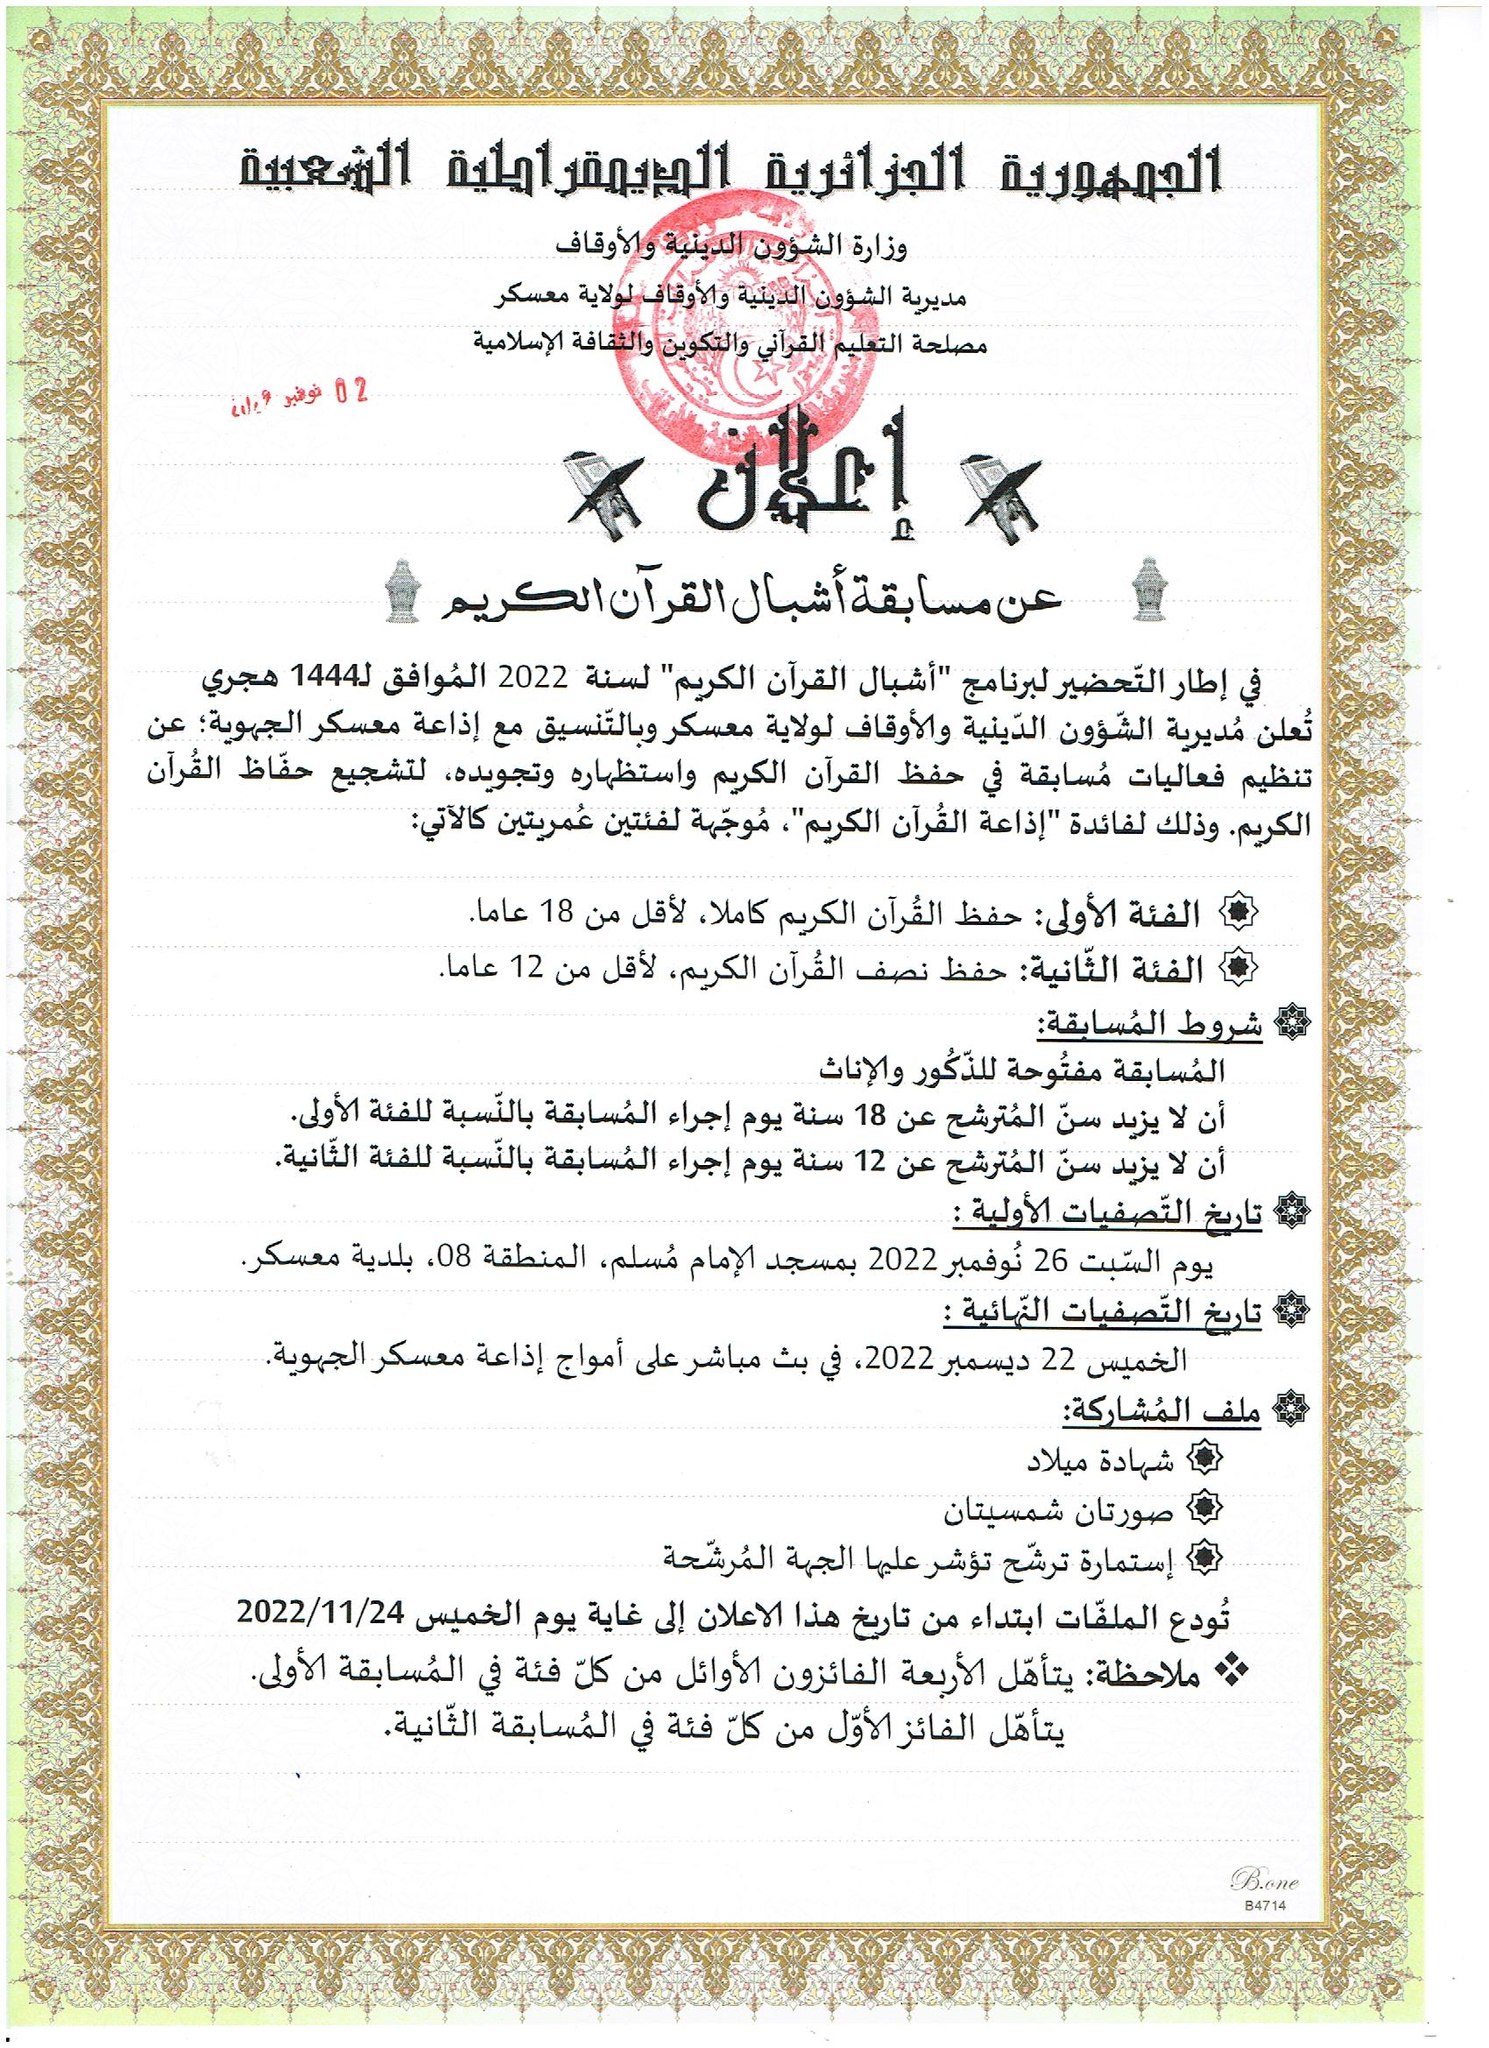 الجمهورية الجزائرية الديمقراطية الشعبية
وزارة الشؤون الدينية والأوقاف
مديرية الشؤون الدينية والأوقاف لولاية معسكر
مصلحة التعليم القرآني والتكوين والثقافة الإسلامية
02 نوفمبر
إعلان
عن مسابقة أشبال القرآن الكريم
في إطار التّحضير لبرنامج "أشبال القرآن الكريم" لسنة 2022 المُوافق لـ1444 هجري
تُعلن مُديرية الشّؤون الدّينية والأوقاف لولاية معسكر وبالتّنسيق مع إذاعة معسكر الجهوية؛ عن
تنظيم فعاليات مُسابقة في حفظ القرآن الكريم واستظهاره وتجويده، لتشجيع حفّاظ القُرآن
الكريم. وذلك لفائدة "إذاعة القُرآن الكريم"، مُوجّهة لفئتين عُمريتين كالآتي:
الفئة الأولى: حفظ القُرآن الكريم كاملا، لأقل من 18 عاما.
الفئة الثّانية: حفظ نصف القُرآن الكريم، لأقل من 12 عاما.
شروط المُسابقة:
المُسابقة مفتُوحة للذّكُور والإناث
أن لا يزيد سنّ المُترشح عن 18 سنة يوم إجراء المُسابقة بالنّسبة للفئة الأولى.
أن لا يزيد سنّ المُترشح عن 12 سنة يوم إجراء المُسابقة بالنّسبة للفئة الثّانية.
تاريخ التّصفيات الأولية :
يوم السّبت 26 نُوفمبر 2022 بمسجد الإمام مُسلم، المنطقة 08، بلدية معسكر.
تاريخ التّصفيات النّهائية :
الخميس 22 ديسمبر 2022، في بث مباشر على أمواج إذاعة معسكر الجهوية.
ملف المُشاركة:
شهادة ميلاد
صورتان شمسيتان
إستمارة ترشّح تؤشر عليها الجهة المُرشّحة
تُودع الملفّات ابتداء من تاريخ هذا الاعلان إلى غاية يوم الخميس 2022/11/24
ملاحظة: يتأهّل الأربعة الفائزون الأوائل من كلّ فئة في المُسابقة الأولى.
يتأهّل الفائز الأوّل من كلّ فئة في المُسابقة الثّانية.
B.one
B4714